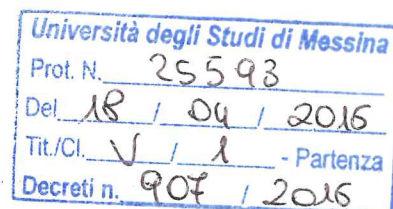 Università degli Studi di Messina
Prot. N. 25593
Del 18 / 04 / 2016
Tit./Cl. V / 1 - Partenza
Decreti n. 907 / 2016